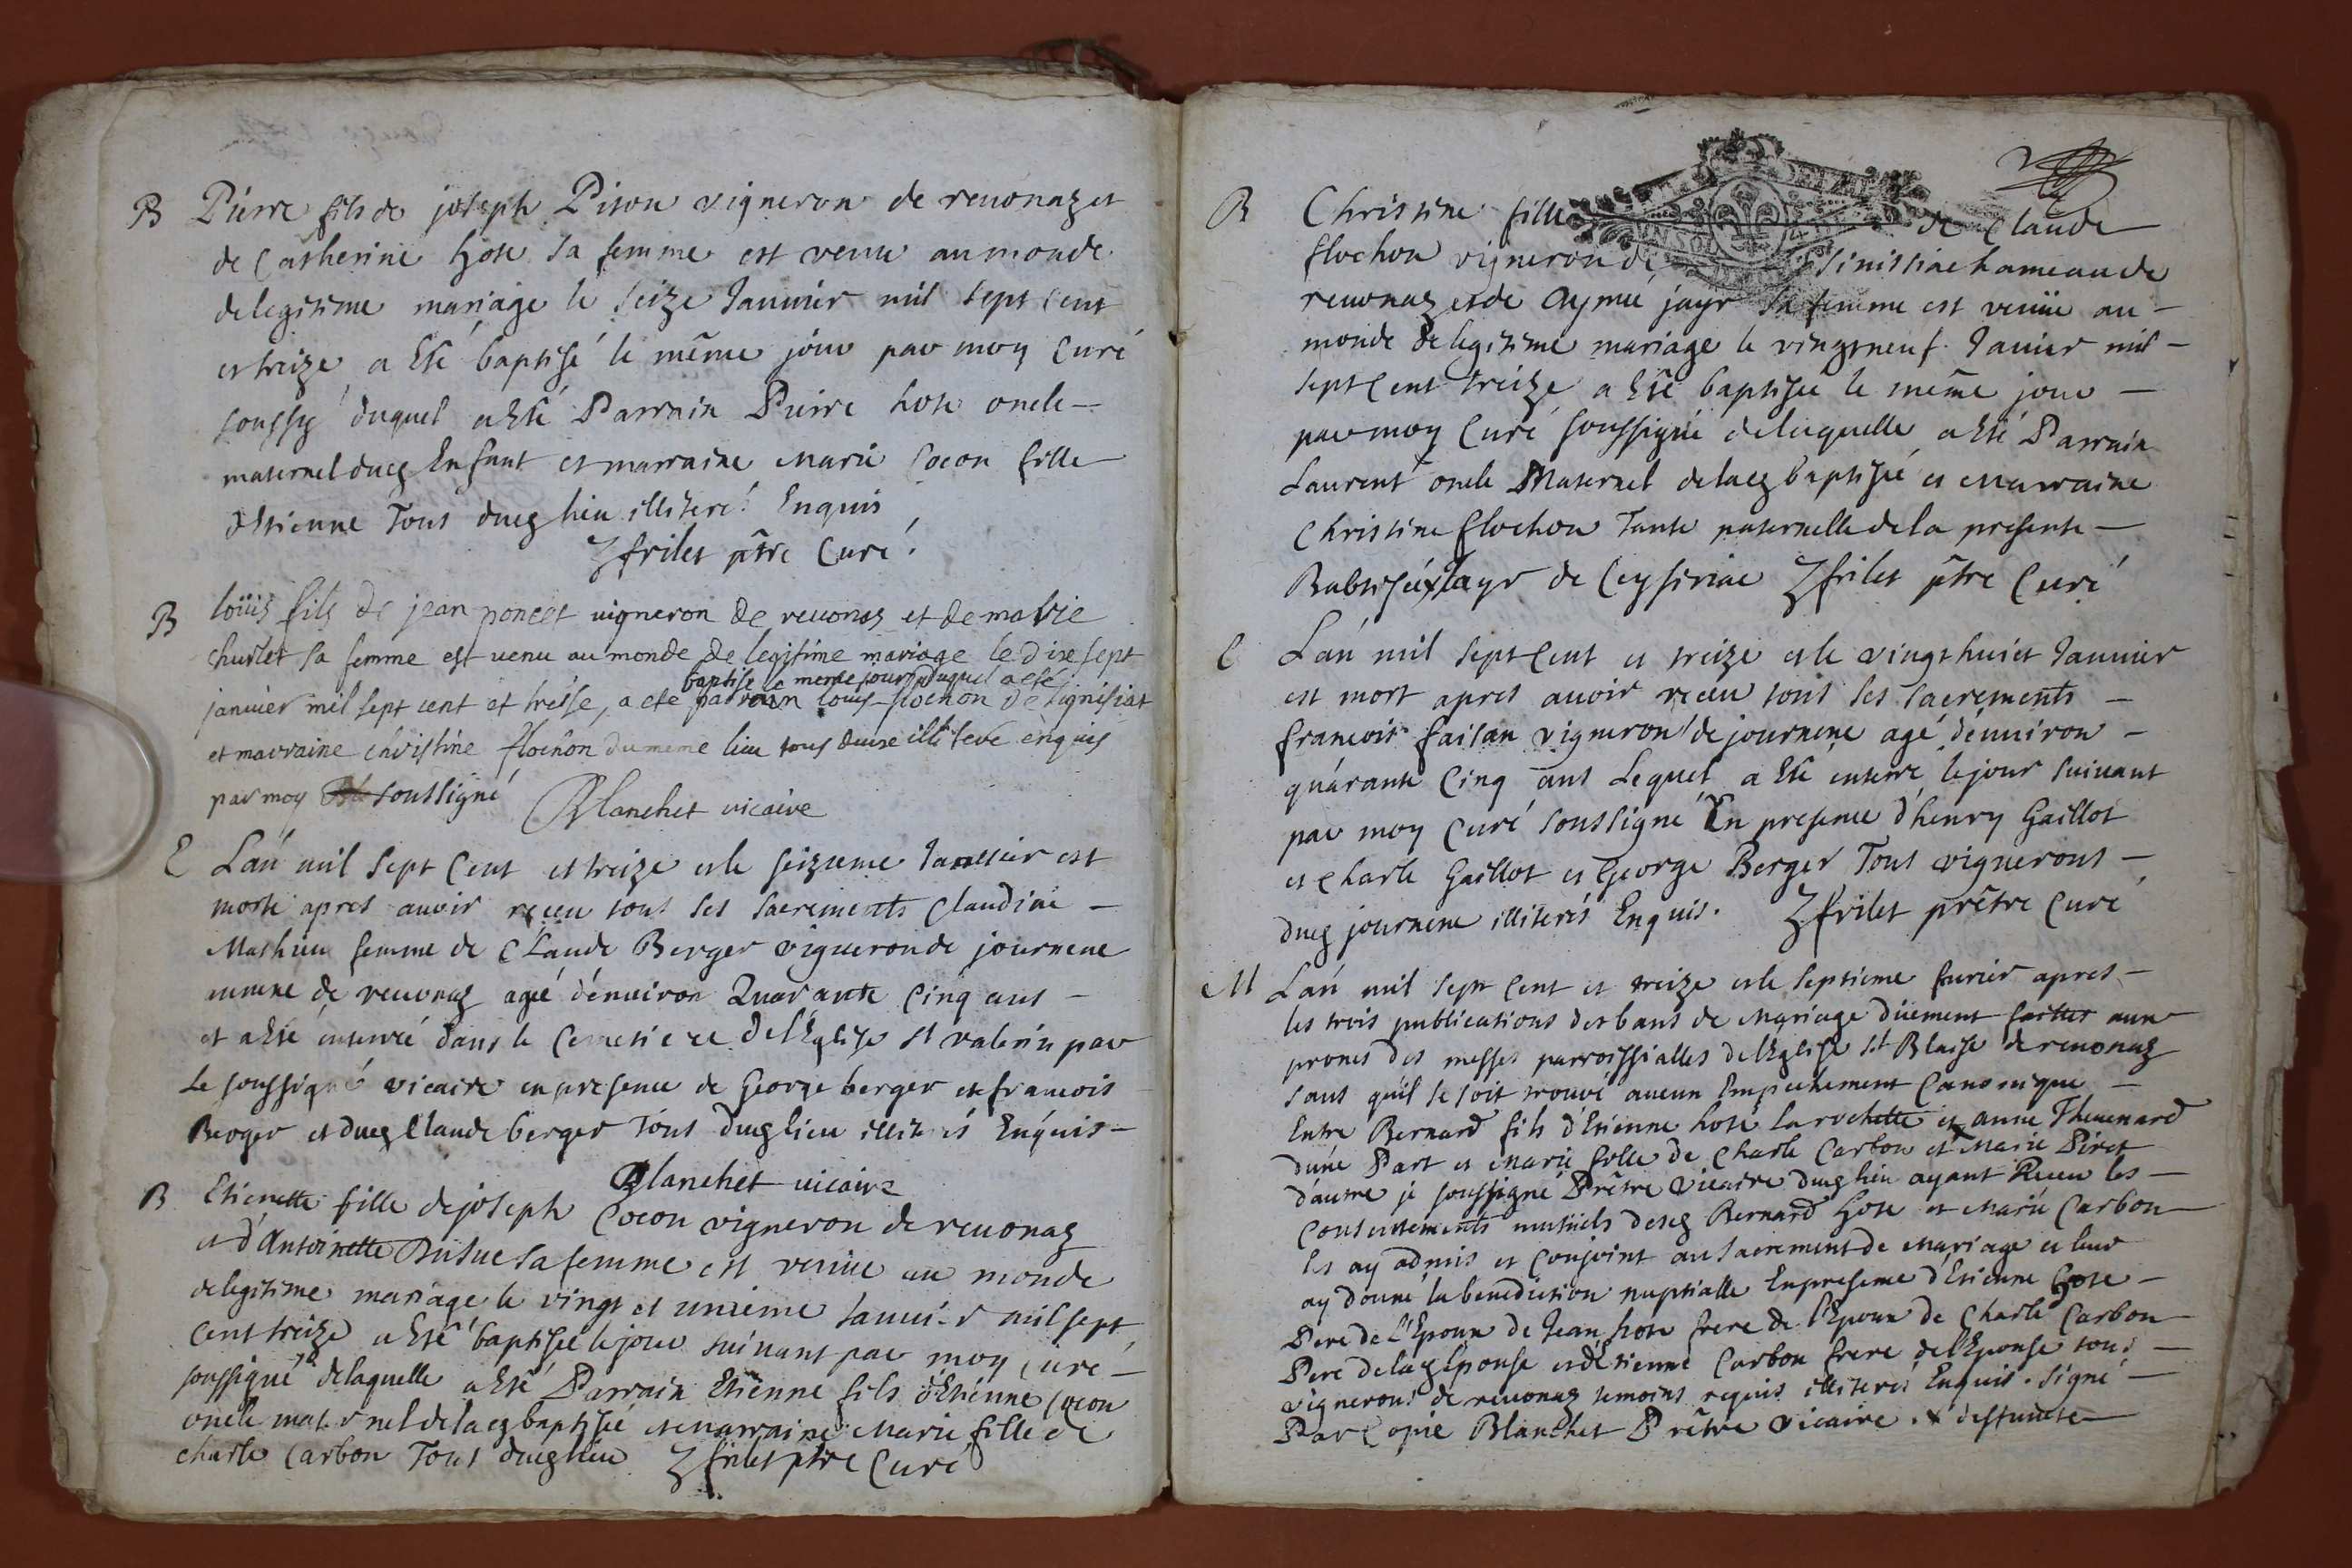 B Pierre fils de joseph Piron vigneron de reuonaz et
de Catherine hote sa femme est venu au monde
de legitime mariage le seize Januier mil sept cent
et treize a Esté baptisé le même jour par moy Curé
soussig duquel a Esté Parrain Pierre hote oncle
maternel ducg Enfant et marraine Marie Cocon fille
d'Estienne Tous ducg lieu illiteré Enquis
frilet ptre Curé
B loüis fils de jean poncet uigneron de reuonas et de marie
churlet sa femme est uenu au monde de legitime mariage le dixsept
baptise le meme jour duquel a ete
januier mil sept cent et treise, a ete parrain louis flochon de signisiat
et marraine christine flochon du meme lieu tous deux illitere enquis
par moy soussigné Blanchet uicaire
E L'an mil sept Cent et treize et le seizieme Januier est
morte apres auoir receu tous ses sacrements Claudine
Mathieu femme de Claude Berger vigneron de journene
annexe de reuonaz agé d'enuiron Quarante Cinq ans
et a Esté enterré dans le Cemetiere de l'Eglise st valerin par
Le soussigné vicaire en presence de George berger et francois
Berger et ducg Claude berger Tous ducg lieu illiterés Enquis
Blanchet uicaire
B Etienette fille de joseph Cocon vigneron de reuonaz
et d'Antoinette sa femme est venüe au monde
de legitime mariage le vingt et unieme Januier mil sept
Cent treize a Esté baptisee le jour suiuant par moy curé
soussigné delaquelle a Esté Parrain Etienne fils d'Estienne Cocon
oncle maternel de lacg baptisée et Marraine Marie fille de
charle Carbon Tous ducg lieu frilet ptre Curé
B Christine fille de Claude
flochon vigneron de Sinissiac hameau de
reuonaz et de Aymée jayr sa femme est venüe au
monde de legitime mariage le vingtneuf Januier mil
sept Cent treize a Esté baptisée le même jour
par moy Curé soussigné delaquelle a Esté Parrain
Laurent oncle Maternel de lacg baptisée et Marraine
Christine flochon Tante paternelle de la presente
Babtisée x layr de Ceyseriac frilet ptre Curé
E L'an mil sept Cent et treize et le vingt huict Januier
est mort apres auoir receu tous ses sacrements
francois faisan vigneron de journene agé d'enuiron
quarante Cinq ans Lequel a Esté enterré le jour suiuant
par moy Curé soussigné En presence d'henry Gaillot
et Charle Gaillot et George Berger Tous vignerons
ducg journene illiterés Enquis. frilet prêtre Curé
M L'an mil sept Cent et treize et le septieme feurier apres
les trois publications des bans de Mariage düement faittes aux
prones des messes parroissialles de l'Eglise st Blaise de reuonaz
sans qu'il se soit trouvé aucun Empechement Canonique
Entre Bernard fils d'Etienne hote Larochette et anne Theuenard
d'une Part et Marie fille de Charle Carbon et Marie Piret
d'autre je soussigné Prêtre Vicaire ducg lieu ayant Receu les
Consentements mutüels descg Bernard hote et Marie Carbon
les ay admis et Conjoint au sacrement de Mariage et leur
ay donné la benediction nuptialle En presence d'Etienne hote
Pere de l'Epoux de Jean hote frere de l'Epoux de Charle Carbon
Pere de lacg Epouse et d'Etienne Carbon frere de l'Epouse tous
vignerons de reuonaz temoins requis illiterés Enquis. Signé
Par Copie Blanchet Prêtre Vicaire. x deffuncte